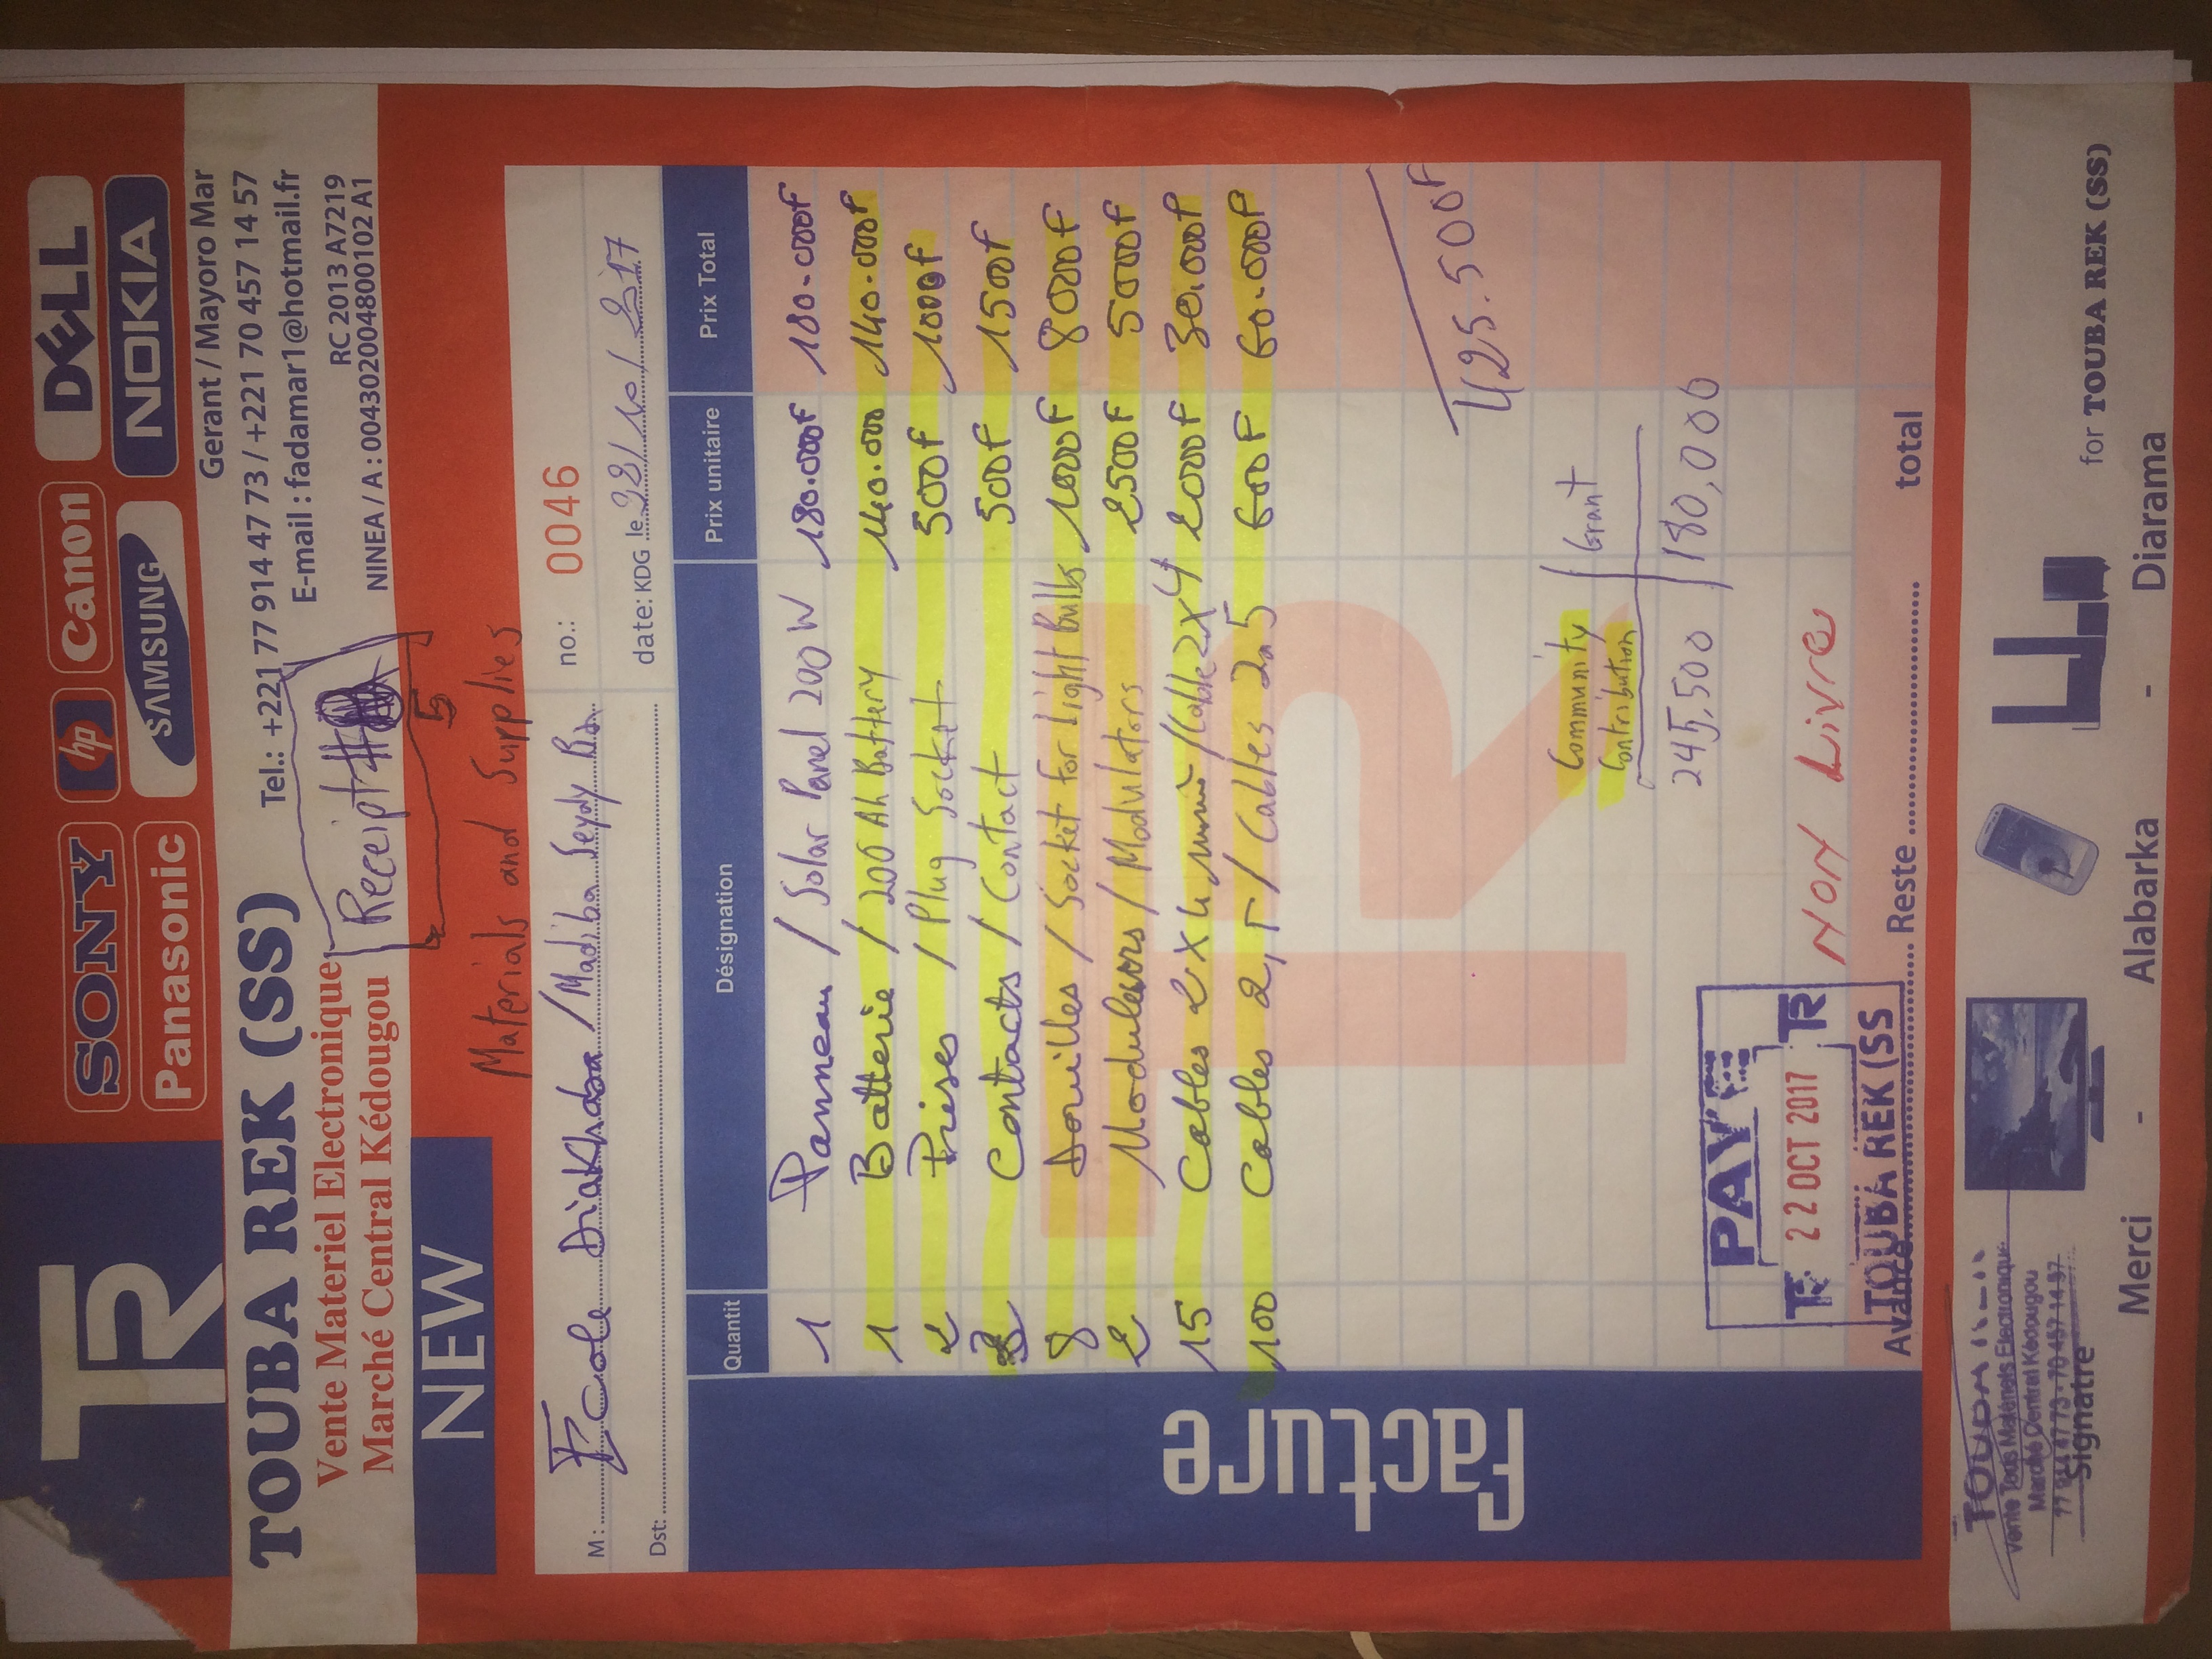 SONY hp Canon DELL
Panasonic SAMSUNG NOKIA
TR
TOUBA REK (SS)
Vente Materiel Electronique
Marché Central Kédougou
NEW
Gerant / Mayoro Mar
Tel.: +221 77 914 47 73 / +221 70 457 14 57
E-mail : fadamar1@hotmail.fr
RC 2013 A7219
NINEA / A : 004302004800102 A1
Receipt #
5
Materials and Supplies
no.: 0046
M : Ecole Diakhaba / Madiba Seydy Ba
date: KDG le 22/10/2017
Dst:
facture
Quantit Désignation Prix unitaire Prix Total
1 Panneau / Solar Panel 200 W 180.000F 180.000F
1 Batterie / 200 Ah Battery 140.000 140.000F
2 Prises / Plug Socket 500F 1000F
3 Contacts / Contact 500F 1500F
8 Douilles / Socket for Light Bulbs 1000F 8000F
2 Moduleurs / Modulators 2500F 5000F
15 Cables 2x4 / Cable 2x4 2000F 30.000F
100 Cables 2,5 / Cables 2.5 600F 60.000F
425.500F
Community Contribution Grant
245,500 180,000
NON Livré
PAYE
TR 22 OCT 2017 TR
TOUBA REK (SS
Avance Reste total
TOUBA
Vente Tous Matériels Electronique
Marché Central Kédougou
77 914 47 73 - 70 457 14 57
Signatre
for TOUBA REK (SS)
Merci - Alabarka - Diarama